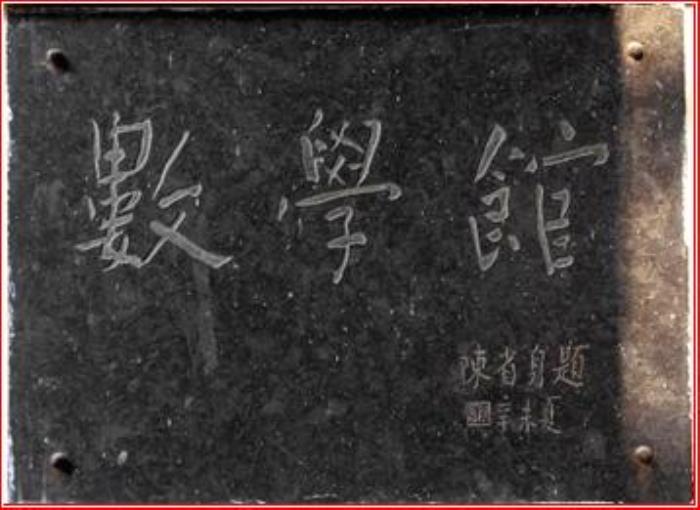 數學館
陳省身題
辛未夏